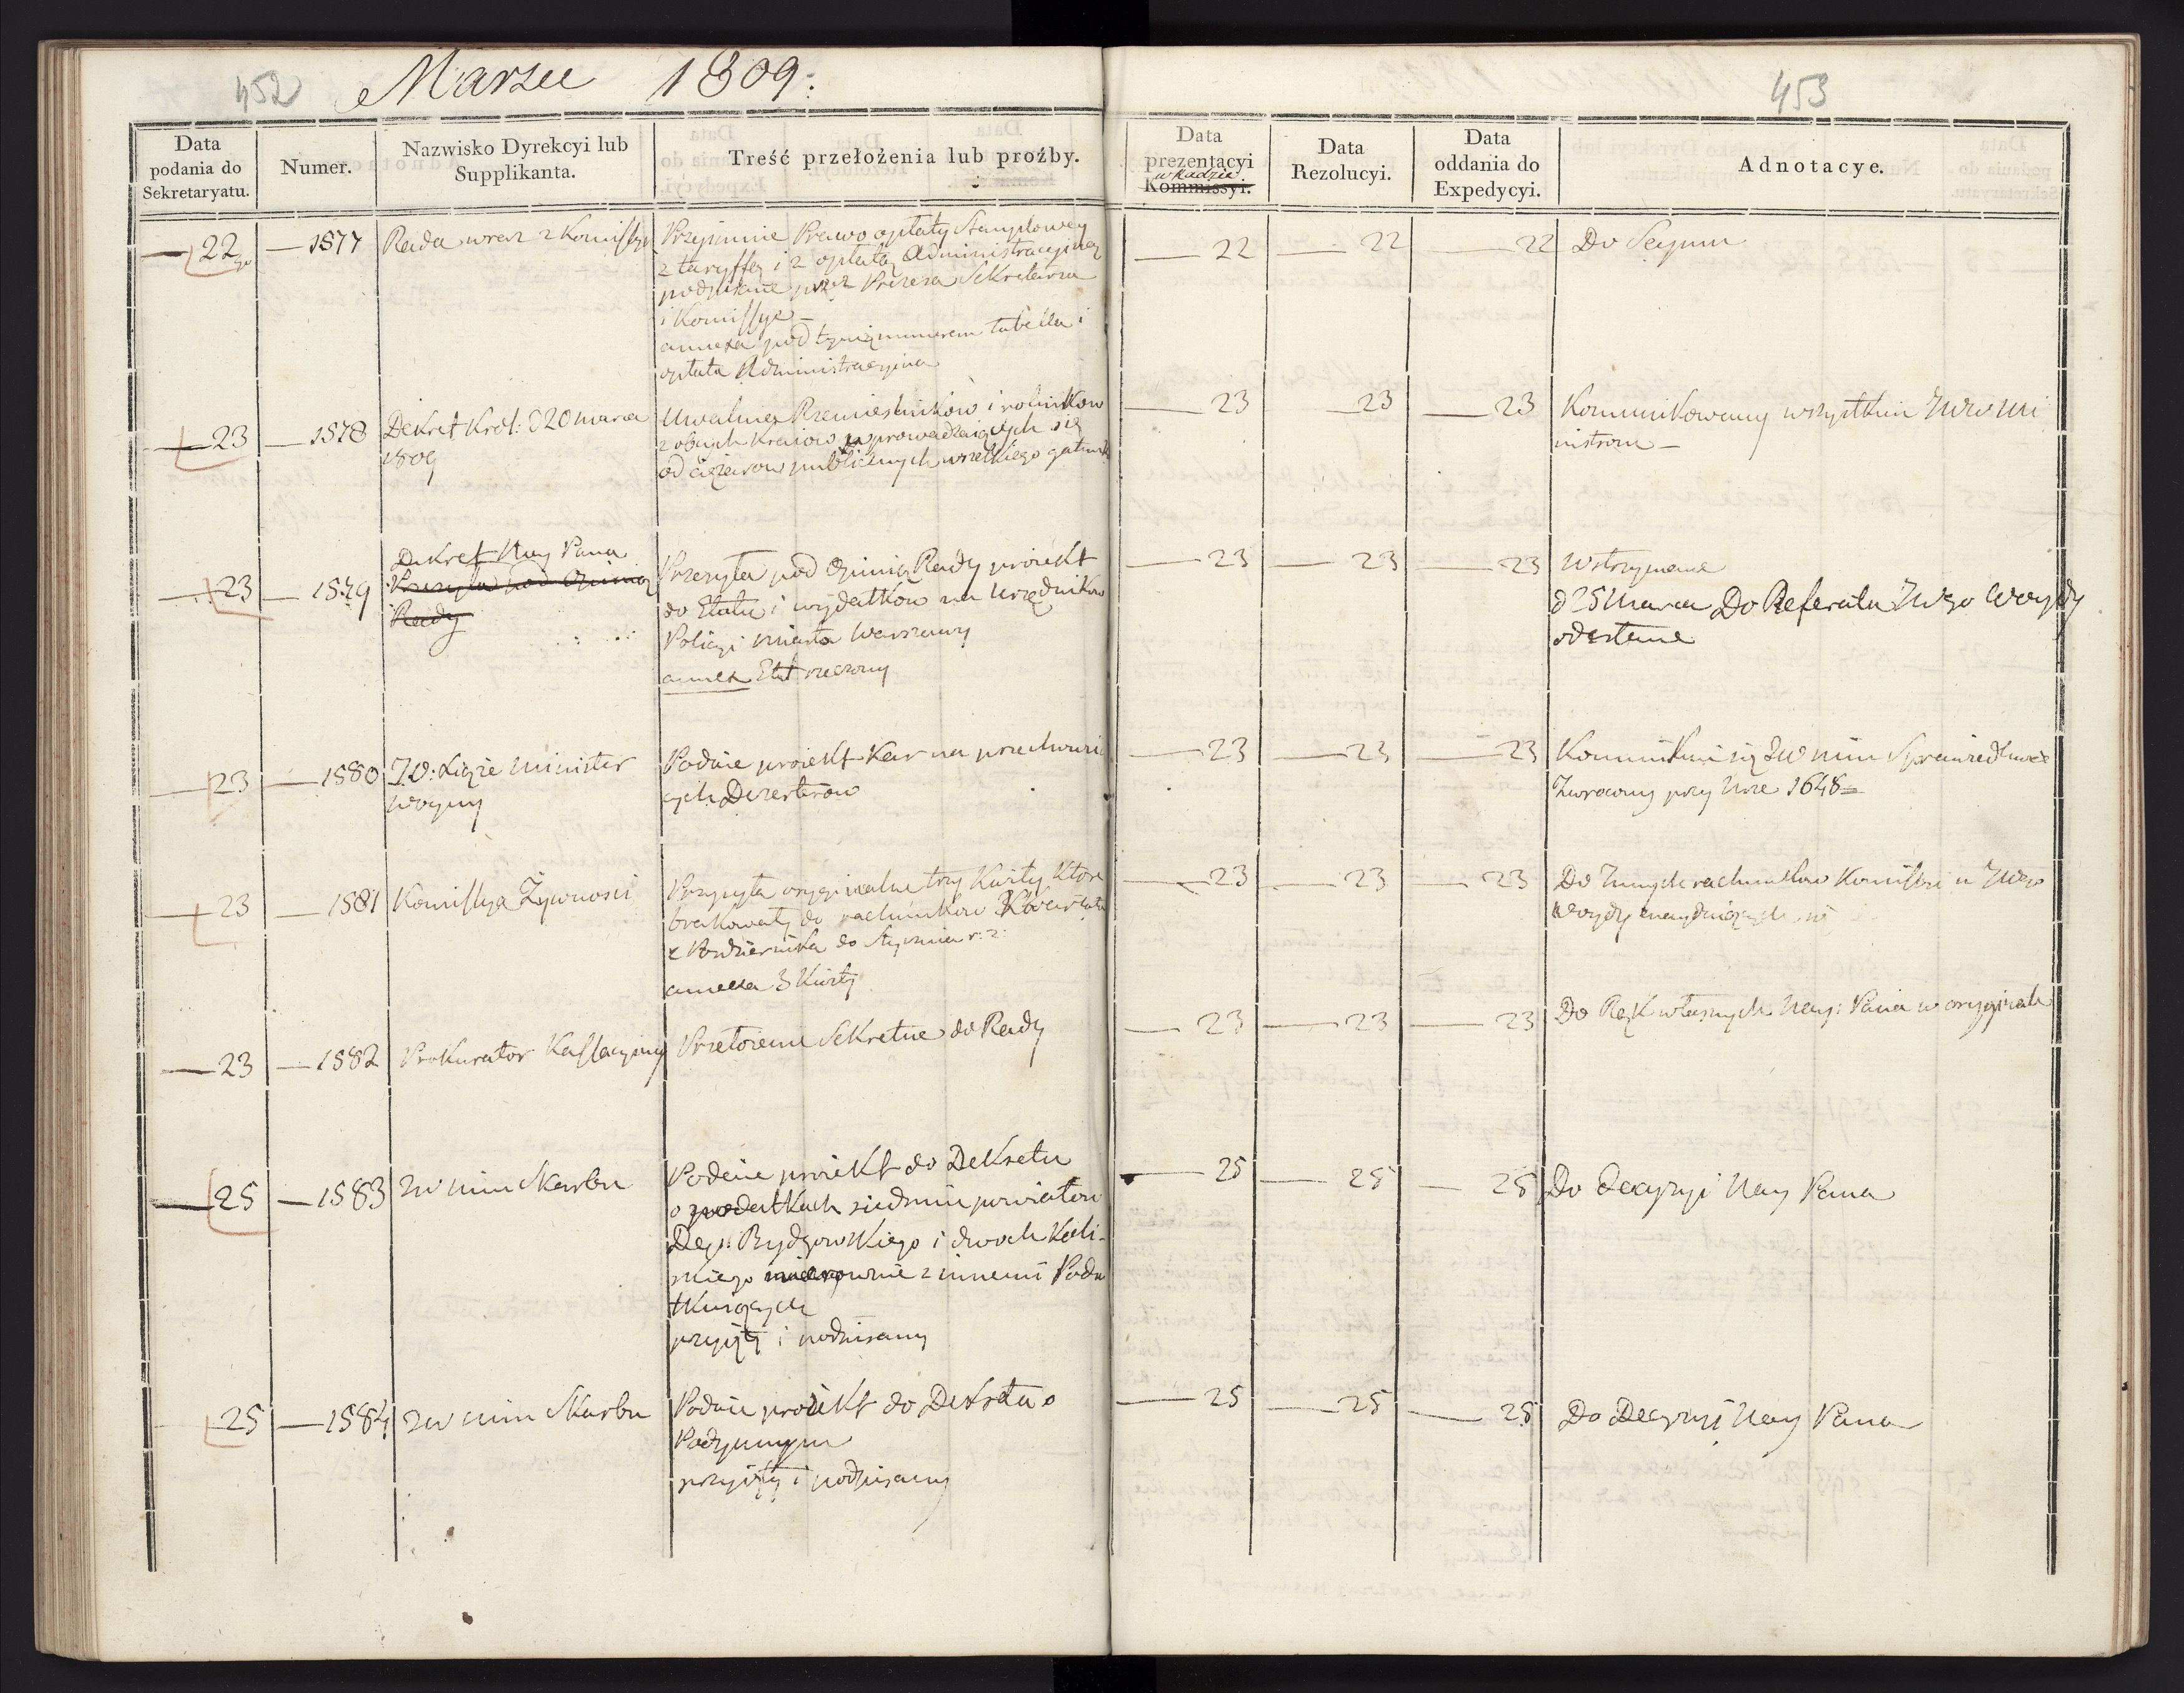 452 Marzec 1809:
453
Data podania do Sekretaryatu.
Numer.
Nazwisko Dyrekcyi lub Supplikanta.
Treść przełożenia lub proźby.
Data prezentacyi w Radzie Kommissyi.
Data Rezolucyi.
Data oddania do Expedycyi.
Adnotacye.
22go 1577 Rada wraz z Komissyi
Przyimuie Prawo opłaty Stemplowey
z taryffą i z opłatą Administracyiną
podpisane przez Prezesa Sekretarza
i Komissye
annexa pod tymże numerem tabella i
opłata Administracyina
22 22 22 Do Seymu
23 1578 Dekret Król: d 20 marca
1809
Uwalnia Rzemieślników i rolników
z obcych kraiow wprowadzaiących się
od ciężarow publicznych wszelkiego gatunk
23 23 23 Kommunikowany wszystkim JWW Mi
nistrom
23 1579 Dekret Nay Pana
Przesyła pod Opinią
Rady
Przesyła pod Opinią Rady proiekt
do Etatu i wydatkow na Urzędnikow
Policyi miasta Warszawy
annex Etat rzeczony
23 23 23 Wstrzymane
d 25 Marca Do Referatu JWgo Woydy
odesłane
23 1580 J.O: Xiąże Minister
Woyny
Podaie proiekt Kar na przechowui
ących Dezerterow
23 23 23 Kommunikuie się JW Min Sprawiedliwoś
Zwrocony przy Nrze 1648
23 1581 Komissya Żywności
Przysyła oryginalne trzy Kwity które
brakowały do rachunkow Kwartału
z Października do Stycznia r: z:
annexa 3 Kwity
23 23 23 Do Innych rachunkow Komissyi u JWgo
Woydy znayduiących się
23 1582 Prokurator Kassacyiny
Przełożenie Sekretne do Rady
23 23 23 Do Rąk własnych Nay: Pana w oryginale
25 1583 JW Min Skarbu
Podaie proiekt do Dekretu
o podatkach siedmiu powiatow
Dep: Bydgowskiego i dwoch Kali-
skiego nierownie z innemi Poda
tkuiących
przyięty i podpisany
25 25 25 Do decyzyi Nay Pana
25 1584 JW Min Skarbu
Podaie proiekt do Dekretu o
Podymnym
przyięty i podpisany
25 25 25 Do Decyzyi Nay Pana